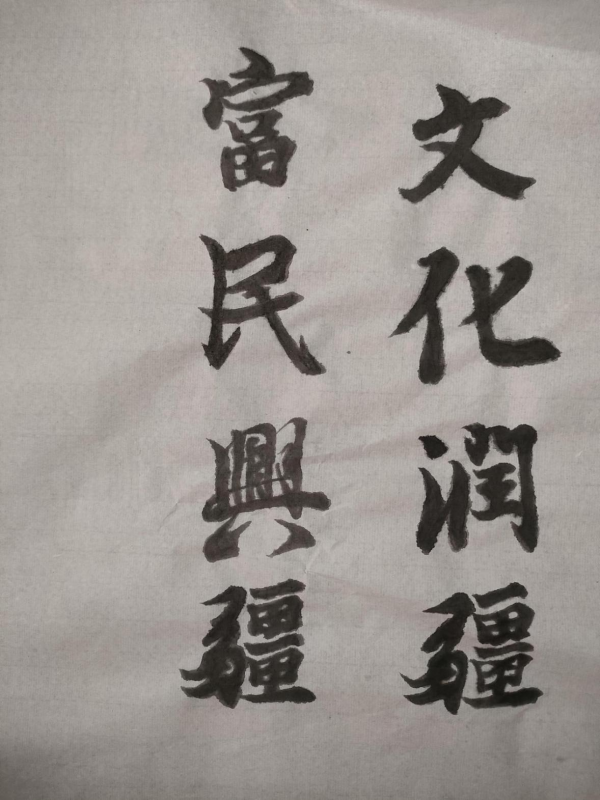 文化润疆
富民興疆